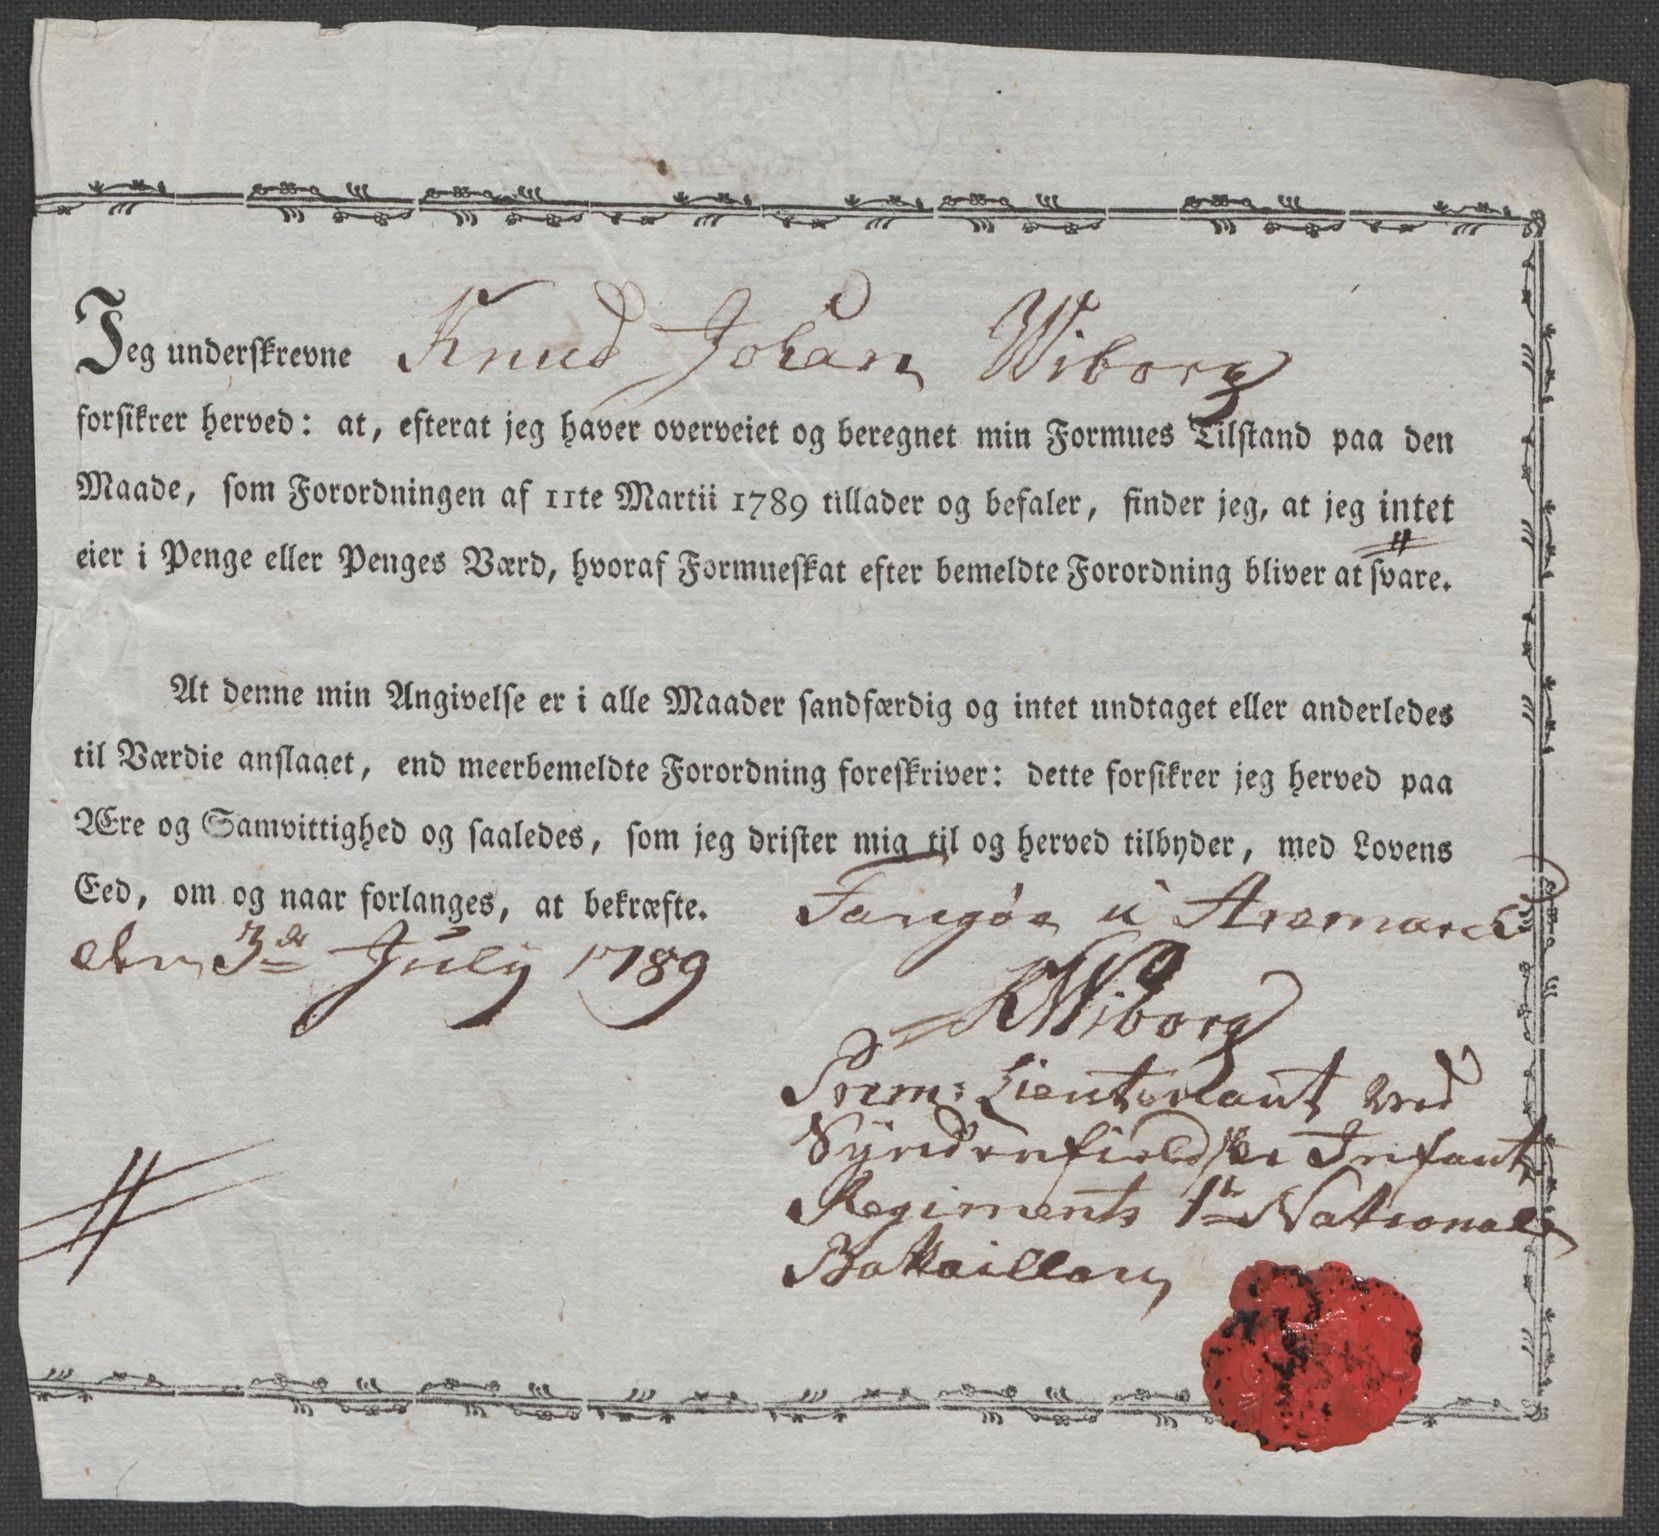 Jeg underskrevne Knud Johan Wiborg
forsikrer herved: at, efterat jeg haver overveiet og beregnet min Formues Tilstand paa den
Maade, som Forordningen af 11te Martii 1789 tillader og befaler, finder jeg, at jeg intet
eier i Penge eller Penges Værd, hvoraf Formueskat efter bemeldte Forordning bliver at svare.
At denne min Angivelse er i alle Maader sandfærdig og intet undtaget eller anderledes
til Værdie anslaget, end meerbemeldte Forordning foreskriver: dette forsikrer jeg herved paa
Ære og Samvittighed og saaledes, som jeg drister mig til og herved tilbyder, med Lovens
Eed, om og naar forlanges, at bekræfte. Tangøe i Aremarck
den 3de July 1789
KWiborg
Prem: Lieutenant ved
Syndenfieldske Infant
Regiments 1te National
Battaillon